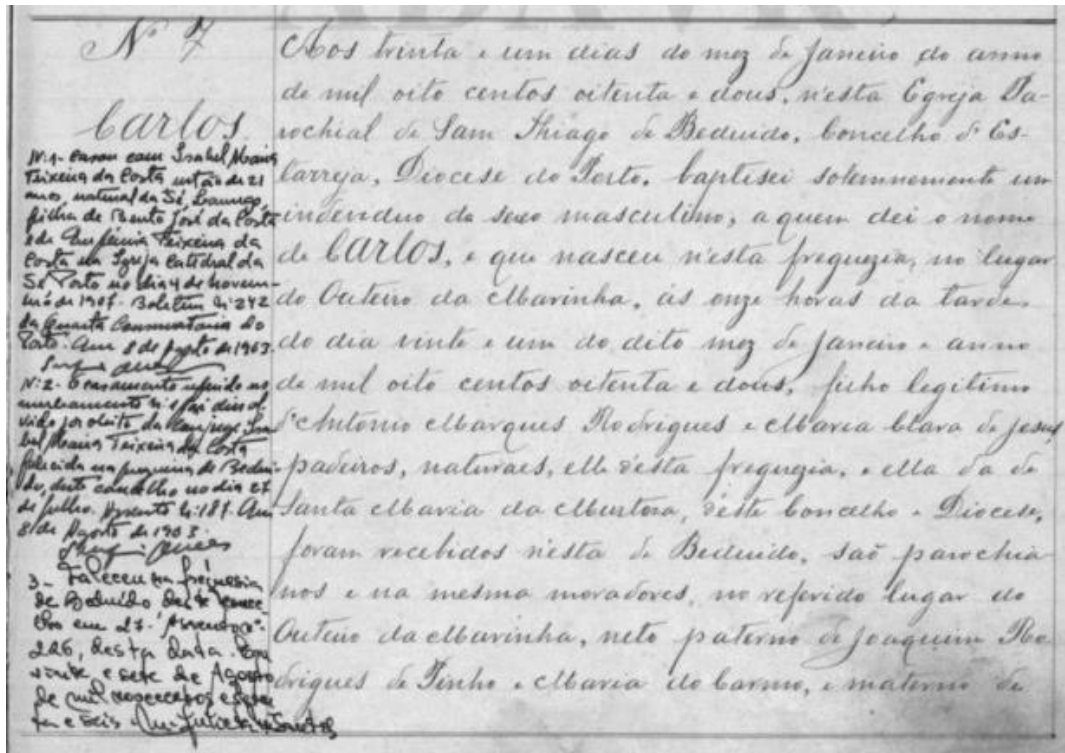 Nº 7
Carlos
N.1- Casou com Isabel Maria
Teixeira da Costa então de 21
anos, natural da Sé, Lamego,
filha de Bento José da Costa
e de Eufémia Teixeira da
Costa na Igreja Catedral da
Sé Porto no dia 4 de novem-
bro de 1907. Boletim nº 242
da Quarta Conservatória do
Porto. Em 8 de Agosto de 1963.
Nº 2- O casamento referido no
averbamento nº 1 foi dissol-
vido por óbito da cônjuge Isa-
bel Maria Teixeira da Costa
falecida na freguesia de Bedui-
do, deste concelho no dia 27
de Julho. Assento nº 187. Em
8 de Agosto de 1963.
3- Faleceu na freguesia
de Beduído deste conce-
lho em 27. Assento nº
226, desta data. Em
vinte e sete de Agosto
de mil novecentos e
e seis
Aos trinta e um dias do mez de Janeiro do anno
de mil oito centos oitenta e dous, n'esta Egreja Pa-
rochial de Sam Thiago de Beduido, Concelho d'Es-
tarreja, Diocese do Porto, baptisei solemnemente um
individuo do sexo masculino, a quem dei o nome
de CARLOS, e que nasceu n'esta freguezia, no lugar
do Outeiro da Marinha, ás onze horas da tarde
do dia vinte e um do dito mez de Janeiro e anno
de mil oito centos oitenta e dous, filho legitimo
d'Antonio Marques Rodrigues e Maria Clara de Jesus,
padeiros, naturaes, elle d'esta freguezia, e ella da de
Santa Maria da Murtosa, d'este Concelho e Diocese,
foram recebidos n'esta de Beduido, saõ parochia-
nos e na mesma moradores, no referido lugar do
Outeiro da Marinha, neto paterno de Joaquim Ro-
drigues de Pinho e Maria do Carmo, e materno de